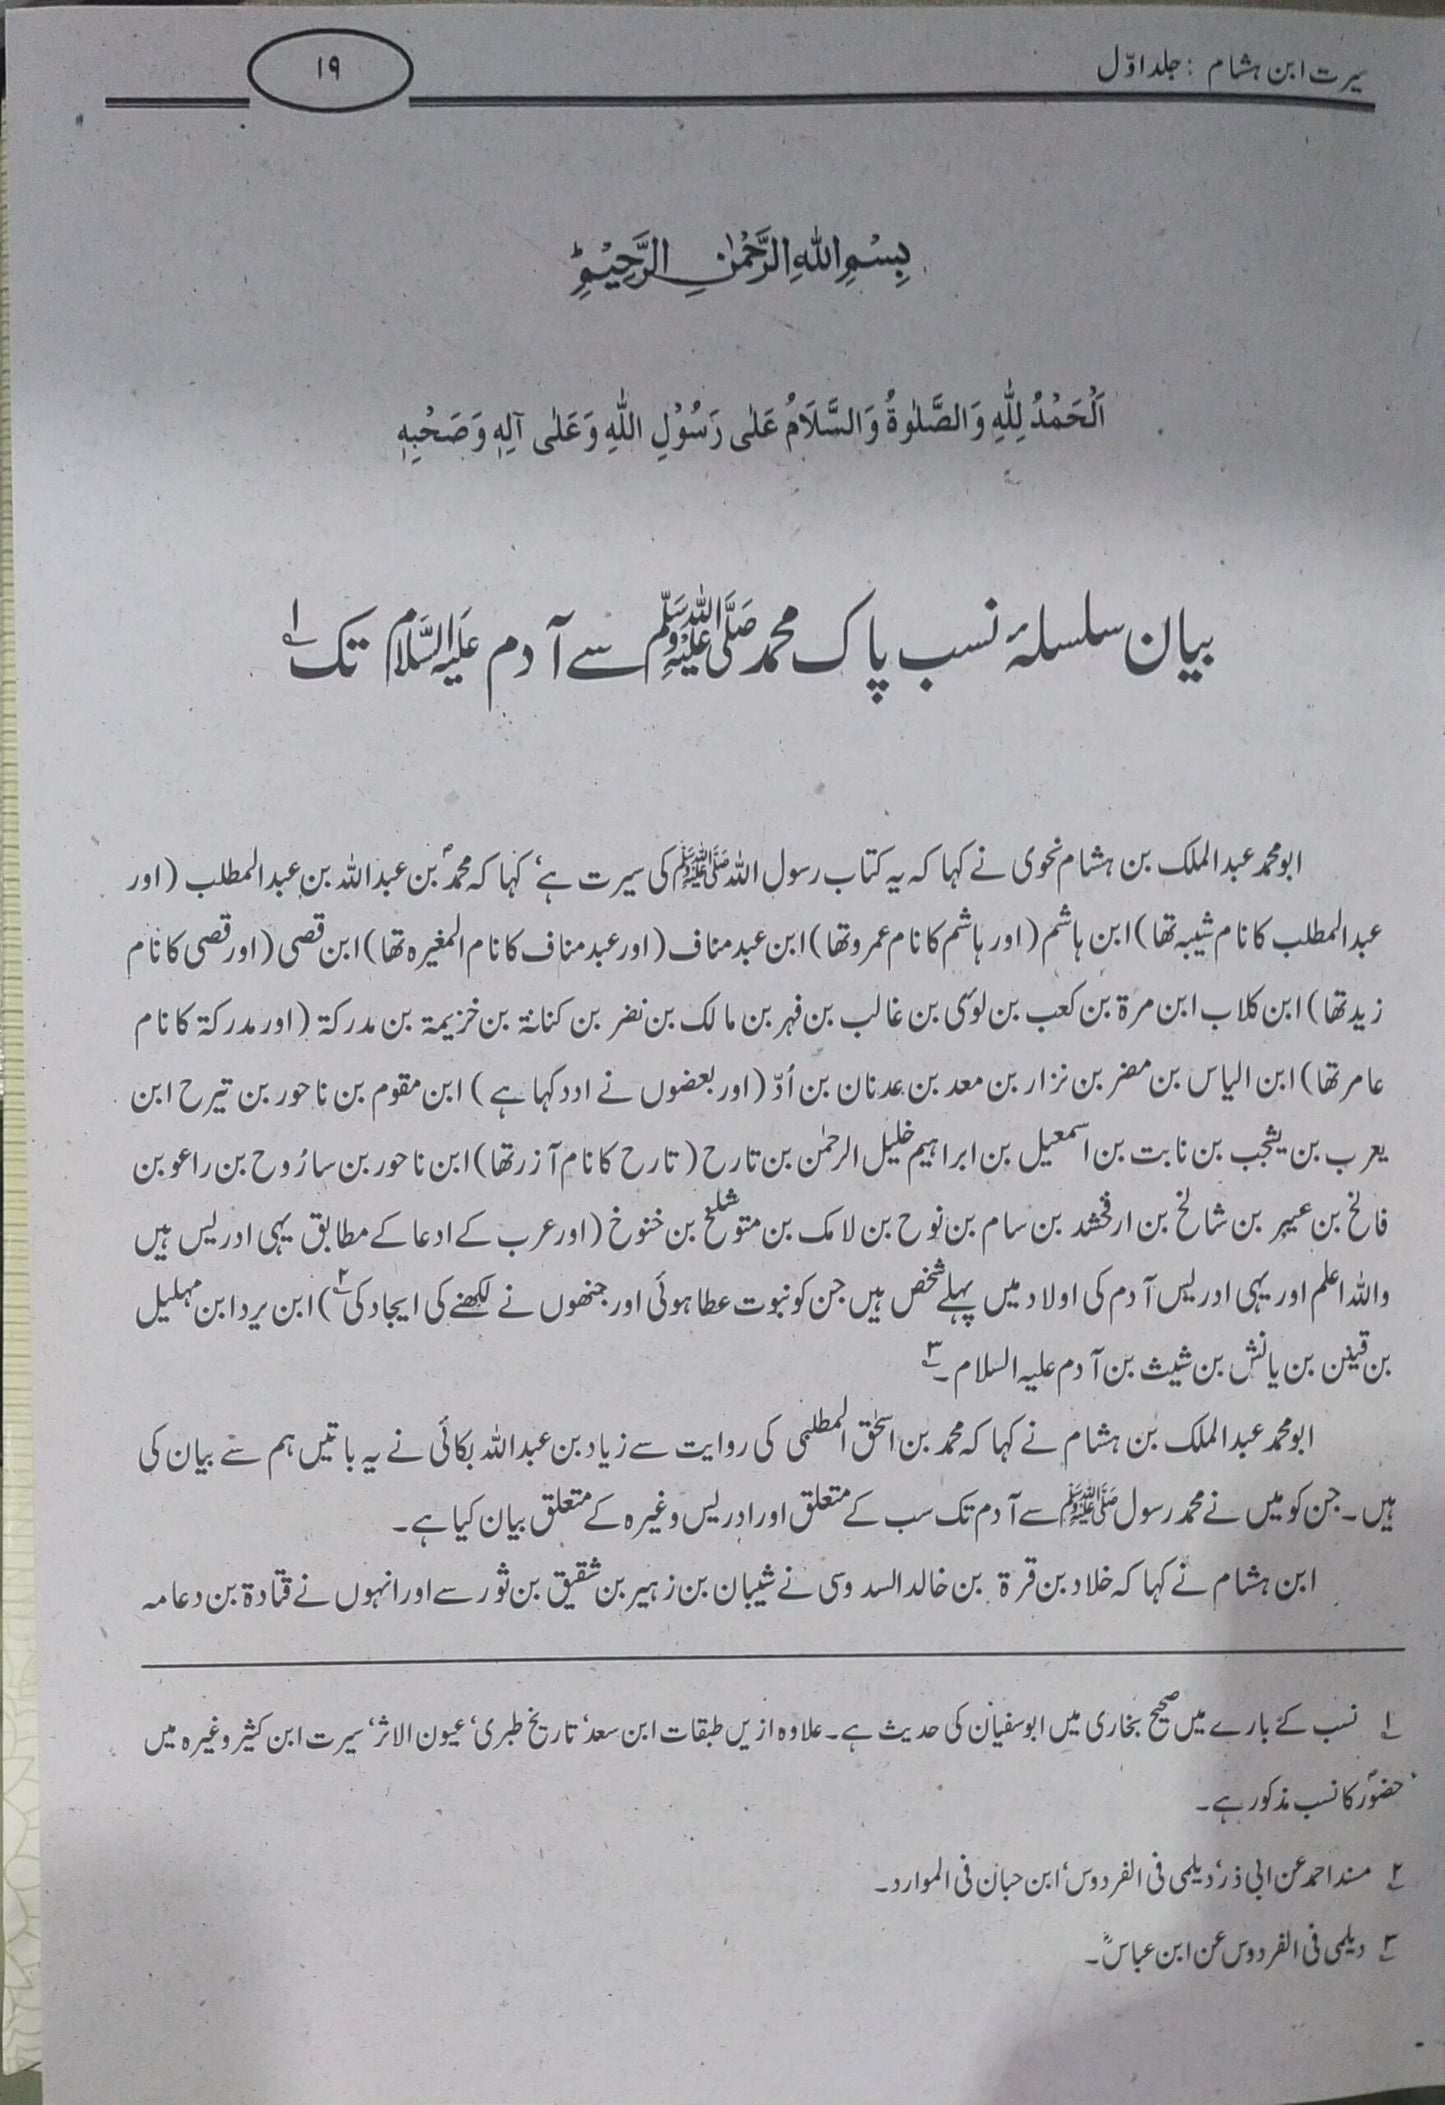 سیرت ابن ہشام : جلد اوّل
۱۹
بِسْمِ اللهِ الرَّحْمٰنِ الرَّحِيْمِ
اَلْحَمْدُ لِلّٰهِ وَالصَّلٰوةُ وَالسَّلَامُ عَلٰى رَسُوْلِ اللّٰهِ وَعَلٰى آلِهٖ وَصَحْبِهٖ
بیان سلسلۂ نسب پاک محمد صلی اللہ علیہ وسلم سے آدم علیہ السلام تک ۱؎
ابو محمد عبدالملک بن ہشام نحوی نے کہا کہ یہ کتاب رسول اللہ ﷺ کی سیرت ہے‘ کہا کہ محمدؐ بن عبداللہ بن عبدالمطلب (اور
عبدالمطلب کا نام شیبہ تھا) ابن ہاشم (اور ہاشم کا نام عمرو تھا) ابن عبد مناف (اور عبد مناف کا نام المغیرہ تھا) ابن قصی (اور قصی کا نام
زید تھا) ابن کلاب ابن مرۃ بن کعب بن لوئی بن غالب بن فہر بن مالک بن نضر بن کنانۃ بن خزیمۃ بن مدرکۃ (اور مدرکۃ کا نام
عامر تھا) ابن الیاس بن مضر بن نزار بن معد بن عدنان بن اُدّ (اور بعضوں نے ادد کہا ہے) ابن مقوم بن ناحور بن تیرح ابن
یعرب بن یشجب بن نابت بن اسمعیل بن ابراہیم خلیل الرحمٰن بن تارح (تارح کا نام آزر تھا) ابن ناحور بن سارُوح بن راعو بن
فالخ بن عیبر بن شالخ بن ارفخشد بن سام بن نوح بن لامک بن متوشلخ بن خنوخ (اور عرب کے ادعا کے مطابق یہی ادریس ہیں
واللہ اعلم اور یہی ادریس آدم کی اولاد میں پہلے شخص ہیں جن کو نبوت عطا ہوئی اور جنھوں نے لکھنے کی ایجاد کی ۲؎) ابن یرد ابن مہلیل
بن قینن بن یانش بن شیث بن آدم علیہ السلام۔ ۳؎
ابو محمد عبدالملک بن ہشام نے کہا کہ محمد بن اسحٰق المطلبی کی روایت سے زیاد بن عبداللہ بکائی نے یہ باتیں ہم سے بیان کی
ہیں۔ جن کو میں نے محمد رسول ﷺ سے آدم تک سب کے متعلق اور ادریس وغیرہ کے متعلق بیان کیا ہے۔
ابن ہشام نے کہا کہ خلاد بن قرۃ بن خالد السدوسی نے شیبان بن زہیر بن شقیق بن ثور سے اور انہوں نے قتادۃ بن دعامہ
۱؎ نسب کے بارے میں صحیح بخاری میں ابوسفیان کی حدیث ہے۔ علاوہ ازیں طبقات ابن سعد‘ تاریخ طبری‘ عیون الاثر‘ سیرت ابن کثیر وغیرہ میں
حضورؐ کا نسب مذکور ہے۔
۲؎ مسند احمد عن ابی ذر‘ دیلمی فی الفردوس‘ ابن حبان فی الموارد۔
۳؎ دیلمی فی الفردوس عن ابن عباسؓ۔